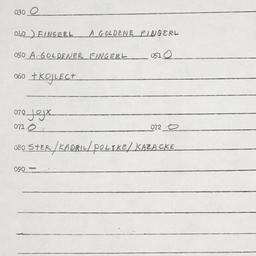 030 O
040 ) FINGERL A GOLDENE FINGERL
050 A GOLDENER FINGERL 051 O
060 +KOJLECT
070 JOJX
071 O 072 O
080 STER/KADRIL/POLTKE/KAZACKE
090 –